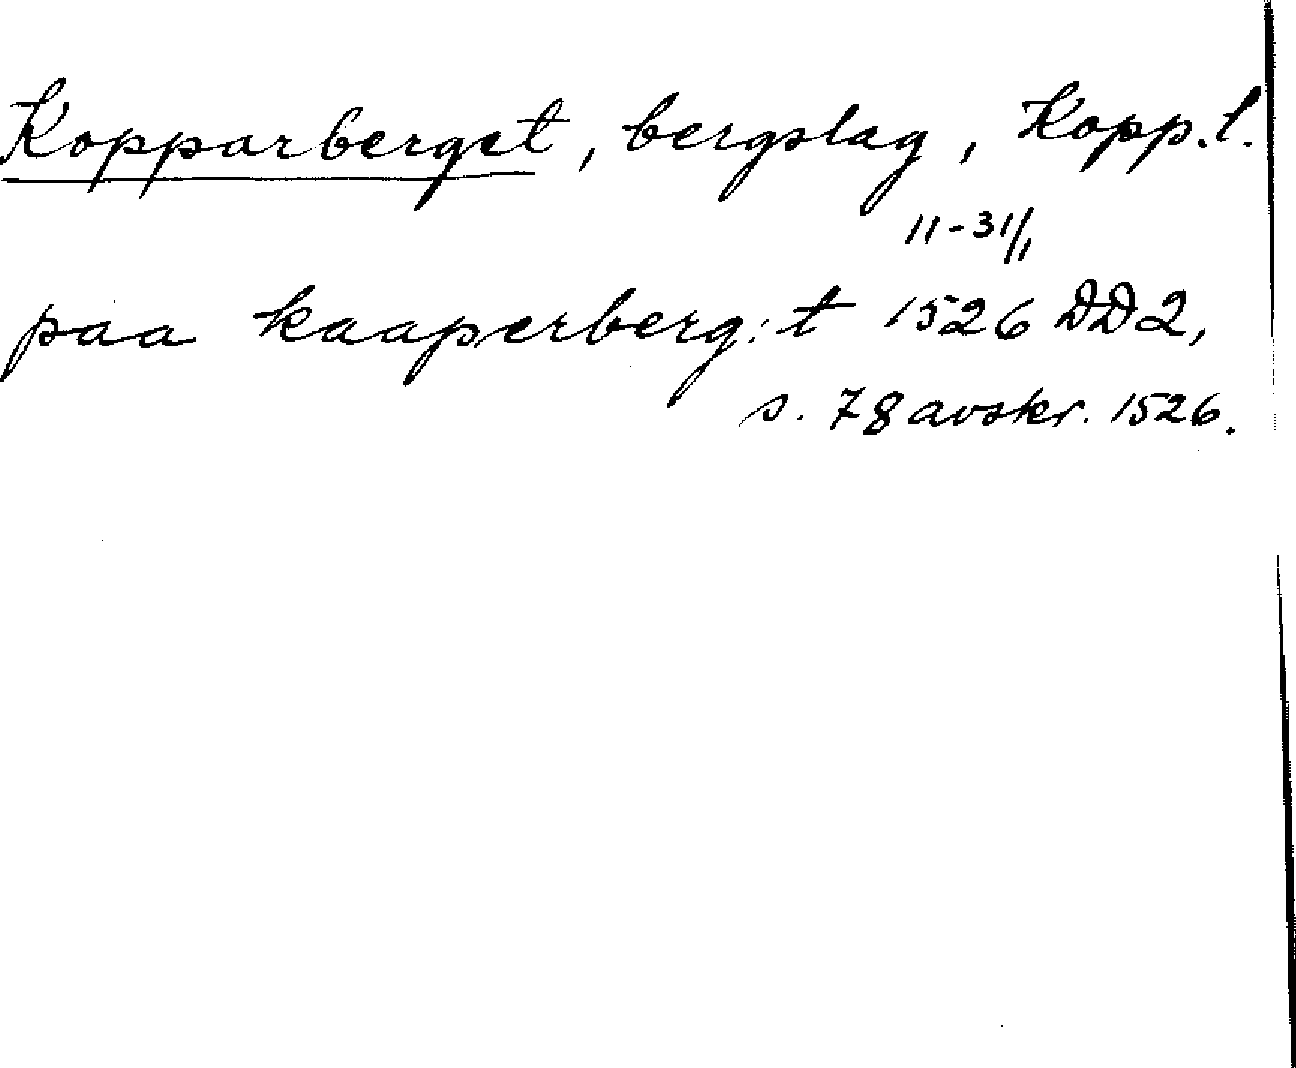 Kopparberget, bergslag, Kopp.l.
11-31/1
paa kaaperberg:t 1526 DD2,
s. 78 avskr. 1526.